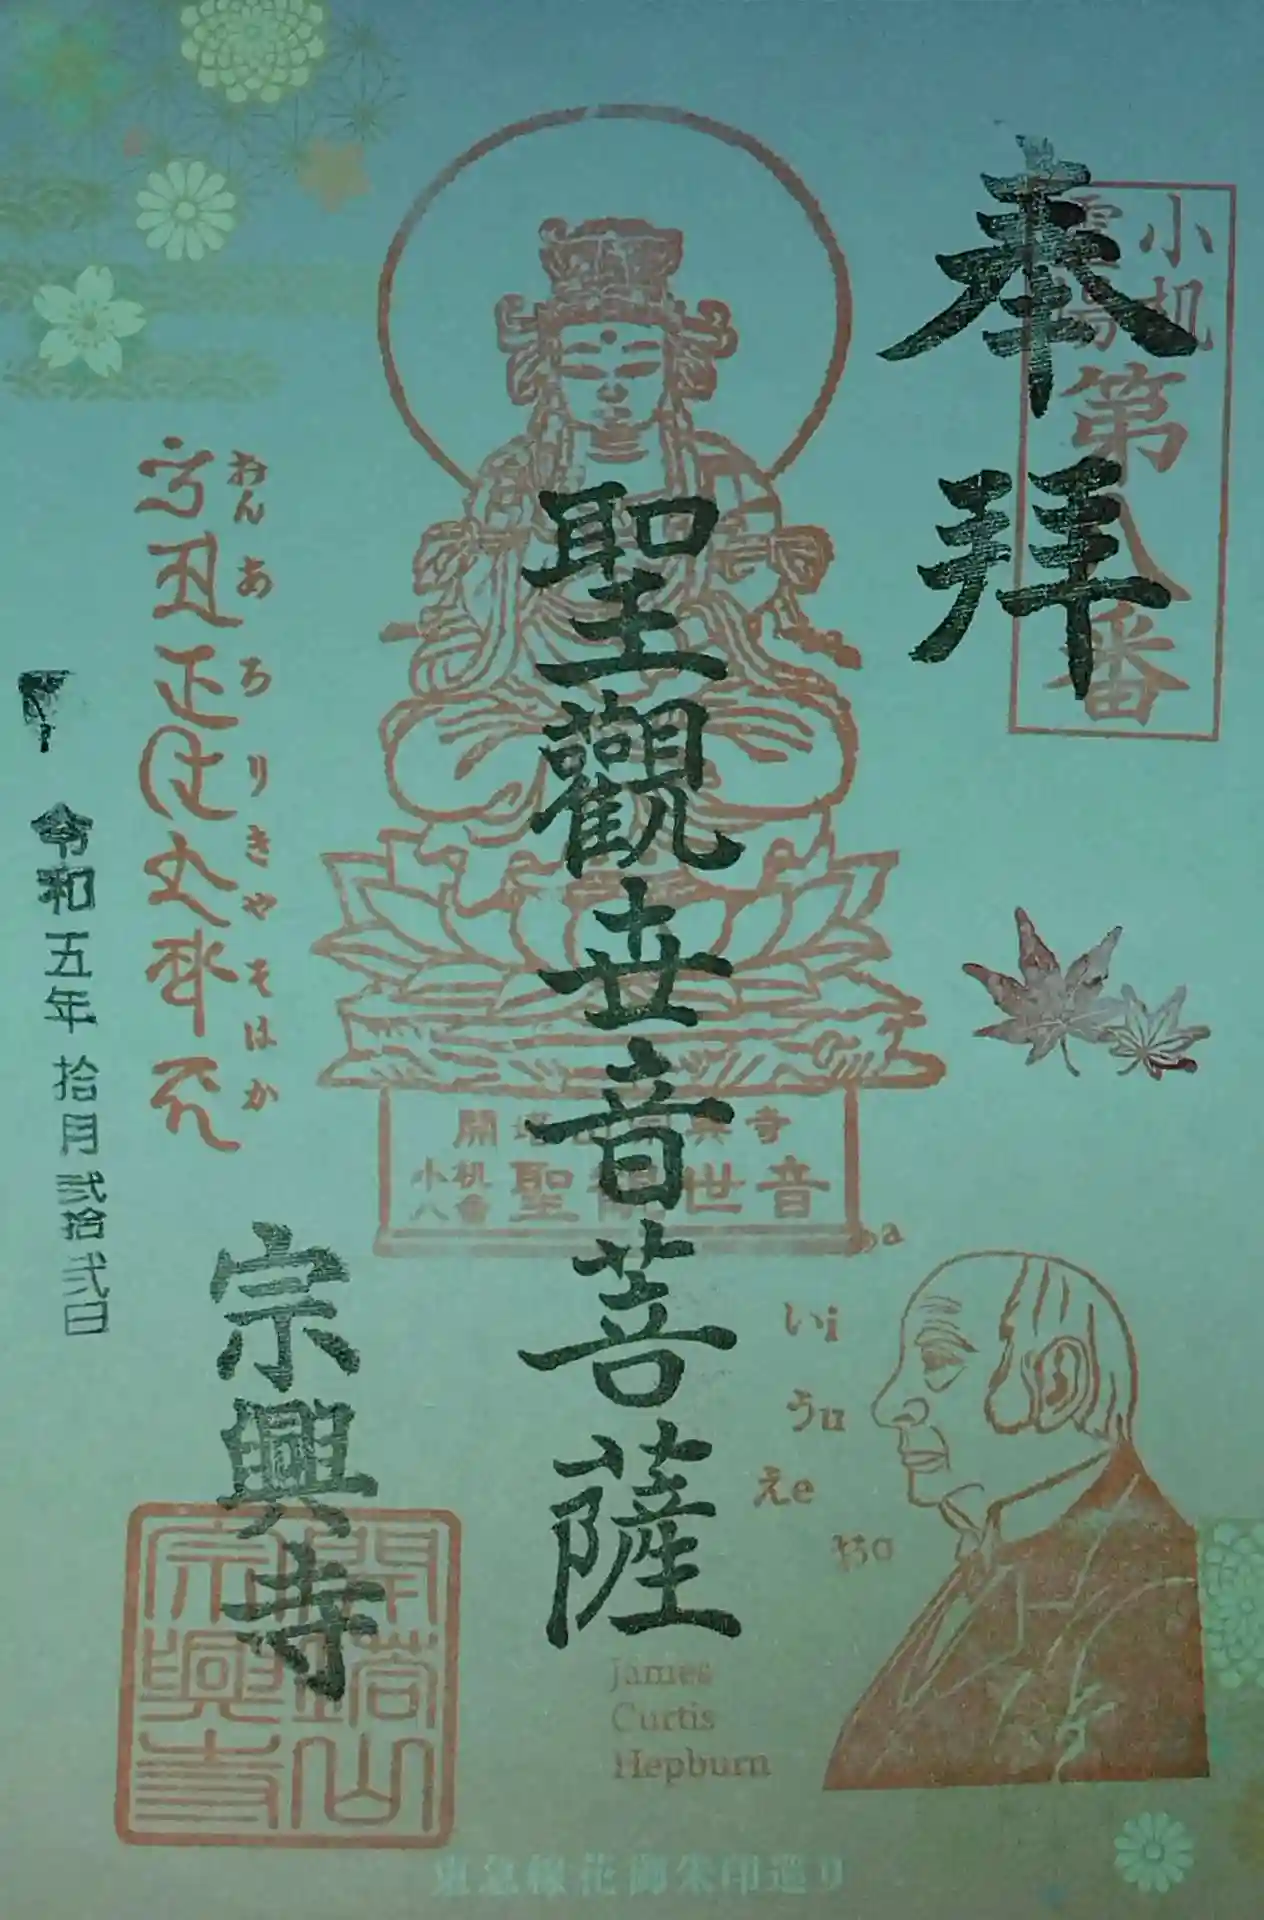 奉拝
小机
霊場
第八番
聖觀世音菩薩
開塔山宗興寺
小机
八番
聖観世音
おん あ ろ り き や そ は か
令和五年 拾月 弐拾弐日
宗興寺
開塔山
宗興寺
a
い i
う u
え e
お o
James
Curtis
Hepburn
東急線花御朱印巡り